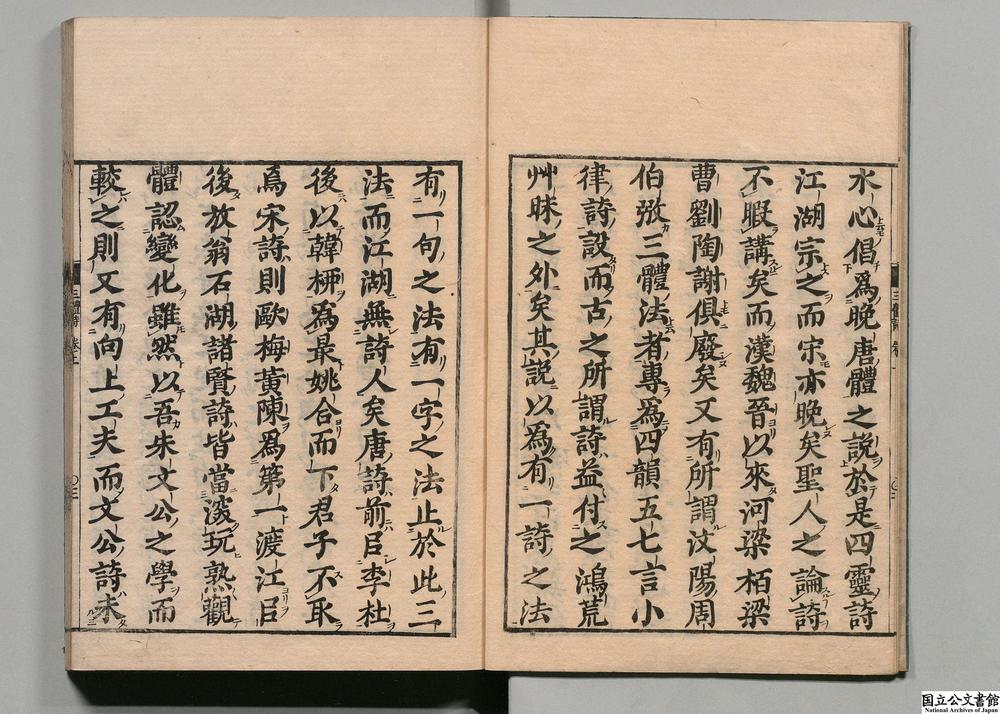 水心倡為晩唐體之說於是四靈詩
江湖宗之而宋亦晩矣聖人之論詩
不暇講矣而漢魏晉以來河梁栢梁
曹劉陶謝俱廢矣又有所謂汶陽周
伯弜三體法者專為四韻五七言小
律詩設而古之所謂詩益付之鴻荒
艸昧之外矣其說以為有一詩之法
有一句之法有一字之法止於此三
法而江湖無詩人矣唐詩前㠯李杜
後以韓桺為最姚合而下君子不取
焉宋詩則歐梅黃陳為第一渡江㠯
後放翁石湖諸賢詩皆當深玩熟觀
體認變化雖然以吾朱文公之學而
較之則又有向上工夫而文公詩未
三體詩 卷上
〇三
国立公文書館
National Archives of Japan